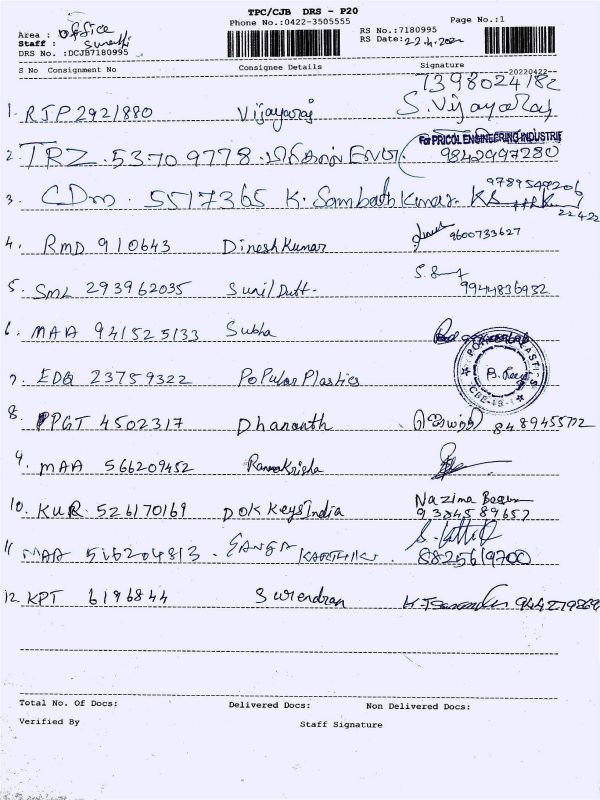 TPC/CJB DRS - P20
Phone No.:0422-3505555
Page No.:1
Area : Office
RS No.:7180995
Staff : Sumathi
RS Date: 22.4.2022
DRS No. :DCJB7180995
S No Consignment No Consignee Details Signature
20220422
7398024182
1. RJP 2921880 Vijayaraj S. Vijayaraj
For PRICOL ENGINEERING INDUSTRIE
2. TRZ. 53709778 9842997280
9789549206
3. CDM. 5517365 K. Sambath Kumar
22422
4. RMD 910643 Dinesh Kumar 9600733627
5. SML 293962035 Sunil Dutt. 9944836932
6. MAA 941525133 Subha
7. EDQ 23759322 PoPular Plastics
8. PGT 4502317 Dhananth
9. MAA 566209452 RamaKrisha
Nazima Begum
10. KUR 526170169 DOK Keys India 9384589657
11. MAA 516204813. GANGA KARTHIK
8825619700
12. KPT 6196844 Surendran
Total No. Of Docs: Delivered Docs: Non Delivered Docs:
Verified By Staff Signature